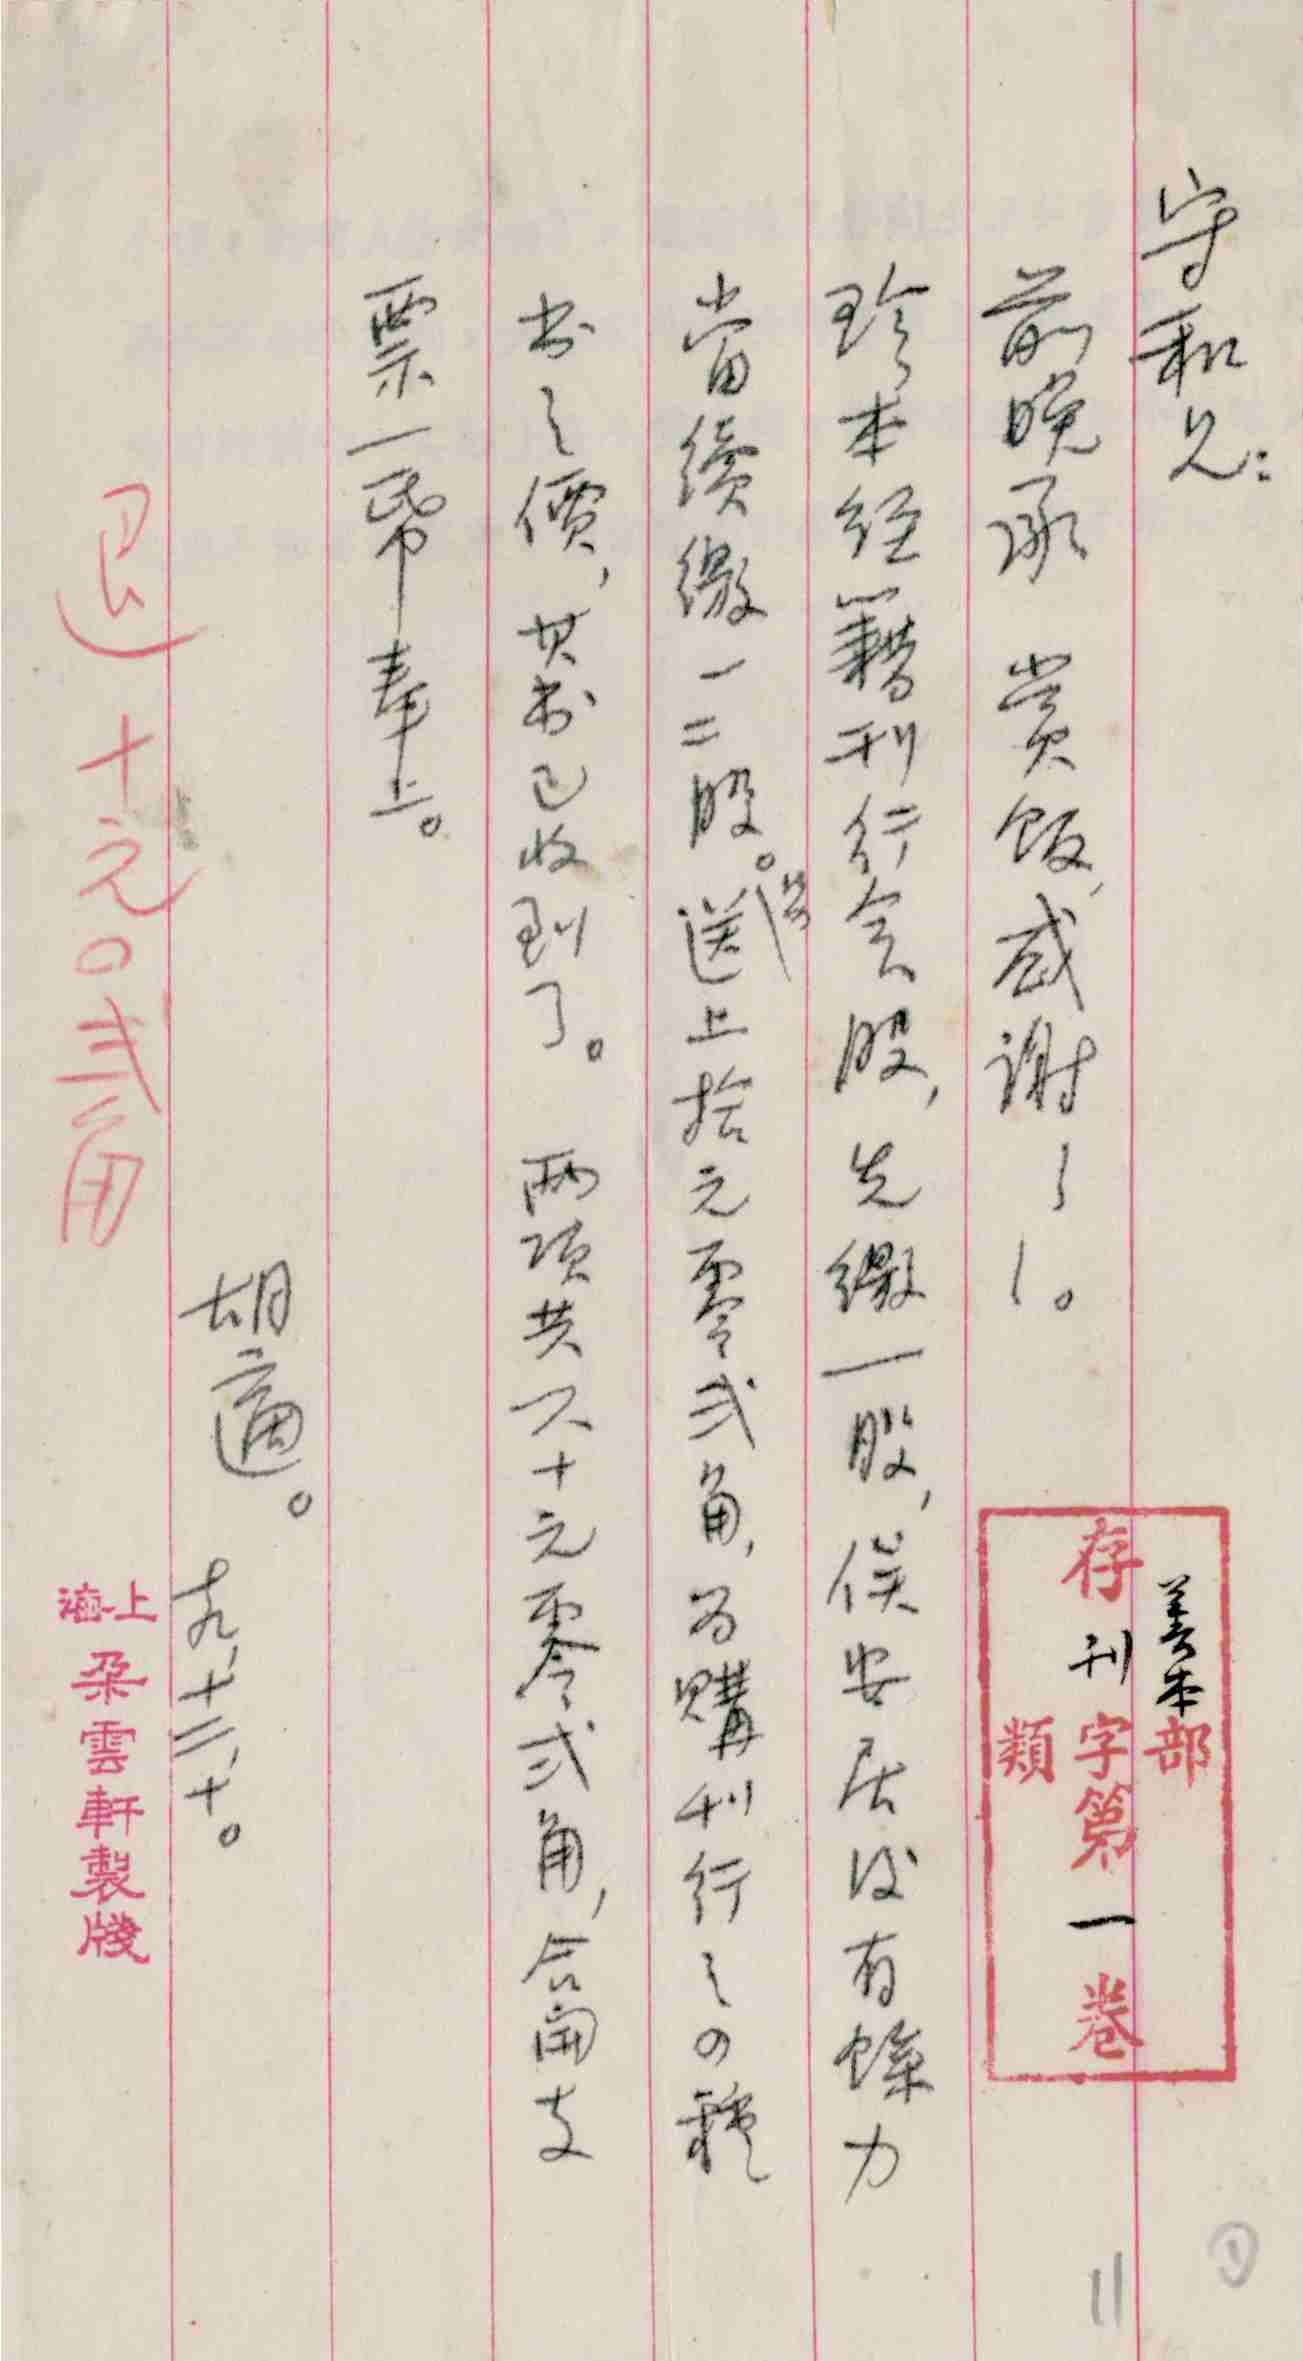 守和兄：
前晚承　賞飯，感謝感謝。
珍本經籍刊行會股，先繳一股，俟安居後有餘力
當續繳一二股。送上拾元零弍角，為購刊行之四種
書之價，其書已收到了。　兩項共六十元零弍角，合開支
票一帋奉上。
胡適。　十九，十二，十。
退十元〇弍角
善本部
存刊字第一卷
類
上海
朶雲軒製牋
11
①